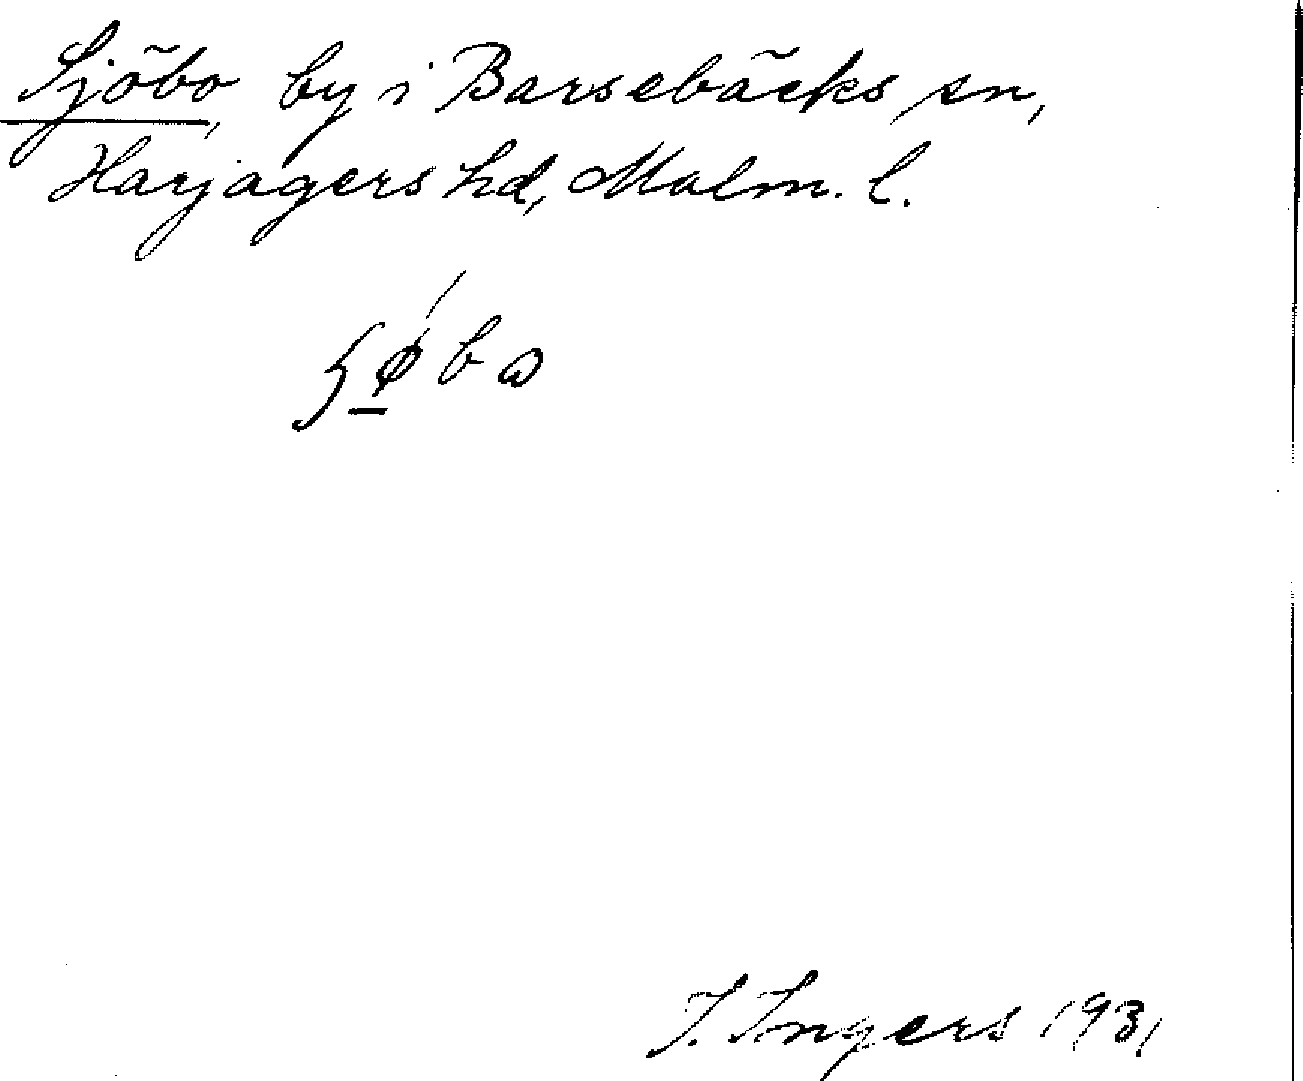 Sjöbo, by i Barsebäcks sn,
Harjagers hd, Malm. l.
I. Ingers 1931